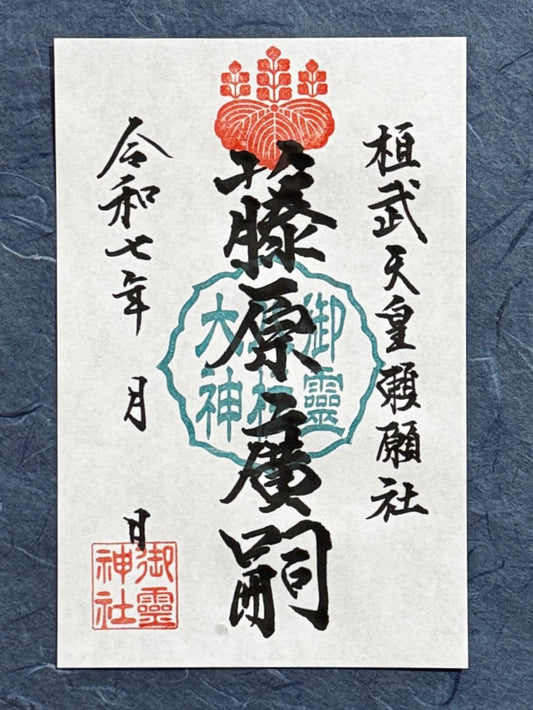 桓武天皇勅願社
藤原廣嗣
令和七年 月 日
御靈
大神
御霊
神社